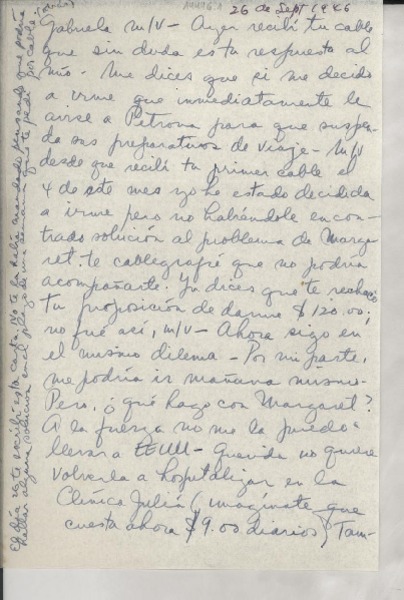 26 de Sept 1946
Gabriela m/v- Ayer recibí tu cable
que sin duda es tu respuesta al
mío - Me dices que si me decido
a irme que inmediatamente le
avise a Petrona para que suspen-
da sus preparativos de viaje - m/v
desde que recibí tu primer cable el
4 de este mes yo he estado decidida
a irme pero no habiéndole encon-
trado solución al problema de Marga-
ret. te cablegrafié que no podría
acompañarte. Tu dices que te rechacé
tu proposición de darme $120.00;
no fué así, m/v- Ahora sigo en
el mismo dilema - Por mi parte,
me podría ir mañana mismo -
Pero, ¿qué hago con Margaret?
A la fuerza no me la puedo
llevar a EEUU - Querida no quiere
volverla a hospitalizar en la
Clínica Juliá (imagínate que
cuesta ahora $9.00 diarios) Tam-
El día que te escribí esta carta, no te la había mandado pensando que podría
hallar alguna solución en el plazo de una semana que te pedí
por cable